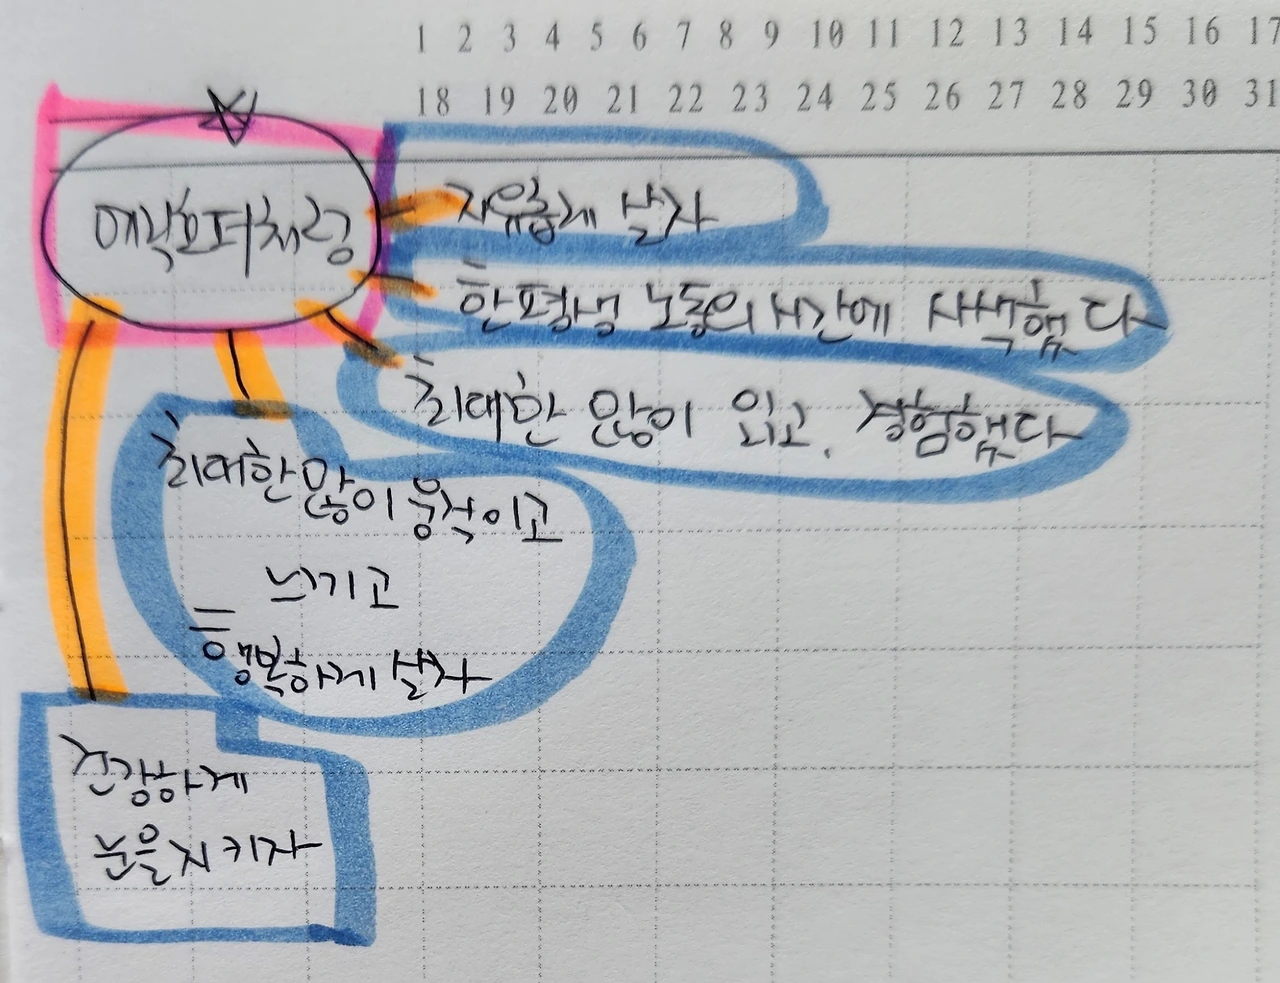 1 2 3 4 5 6 7 8 9 10 11 12 13 14 15 16 17
18 19 20 21 22 23 24 25 26 27 28 29 30 31
에릭호퍼처럼
자유롭게 살자
한평생 노동의 시간에 사색했다
최대한 많이 읽고, 경험했다
최대한 많이 움직이고
느끼고
행복하게 살자
건강하게
눈을 지키자